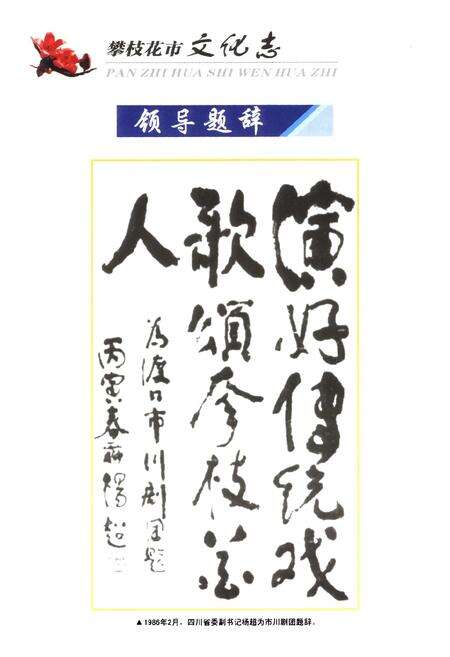 攀枝花市文化志
PAN ZHI HUA SHI WEN HUA ZHI
领导题辞
演好传统戏
歌頌攀枝花
人
为渡口市川剧团题
丙寅春 杨超
▲1986年2月，四川省委副书记杨超为市川剧团题辞。